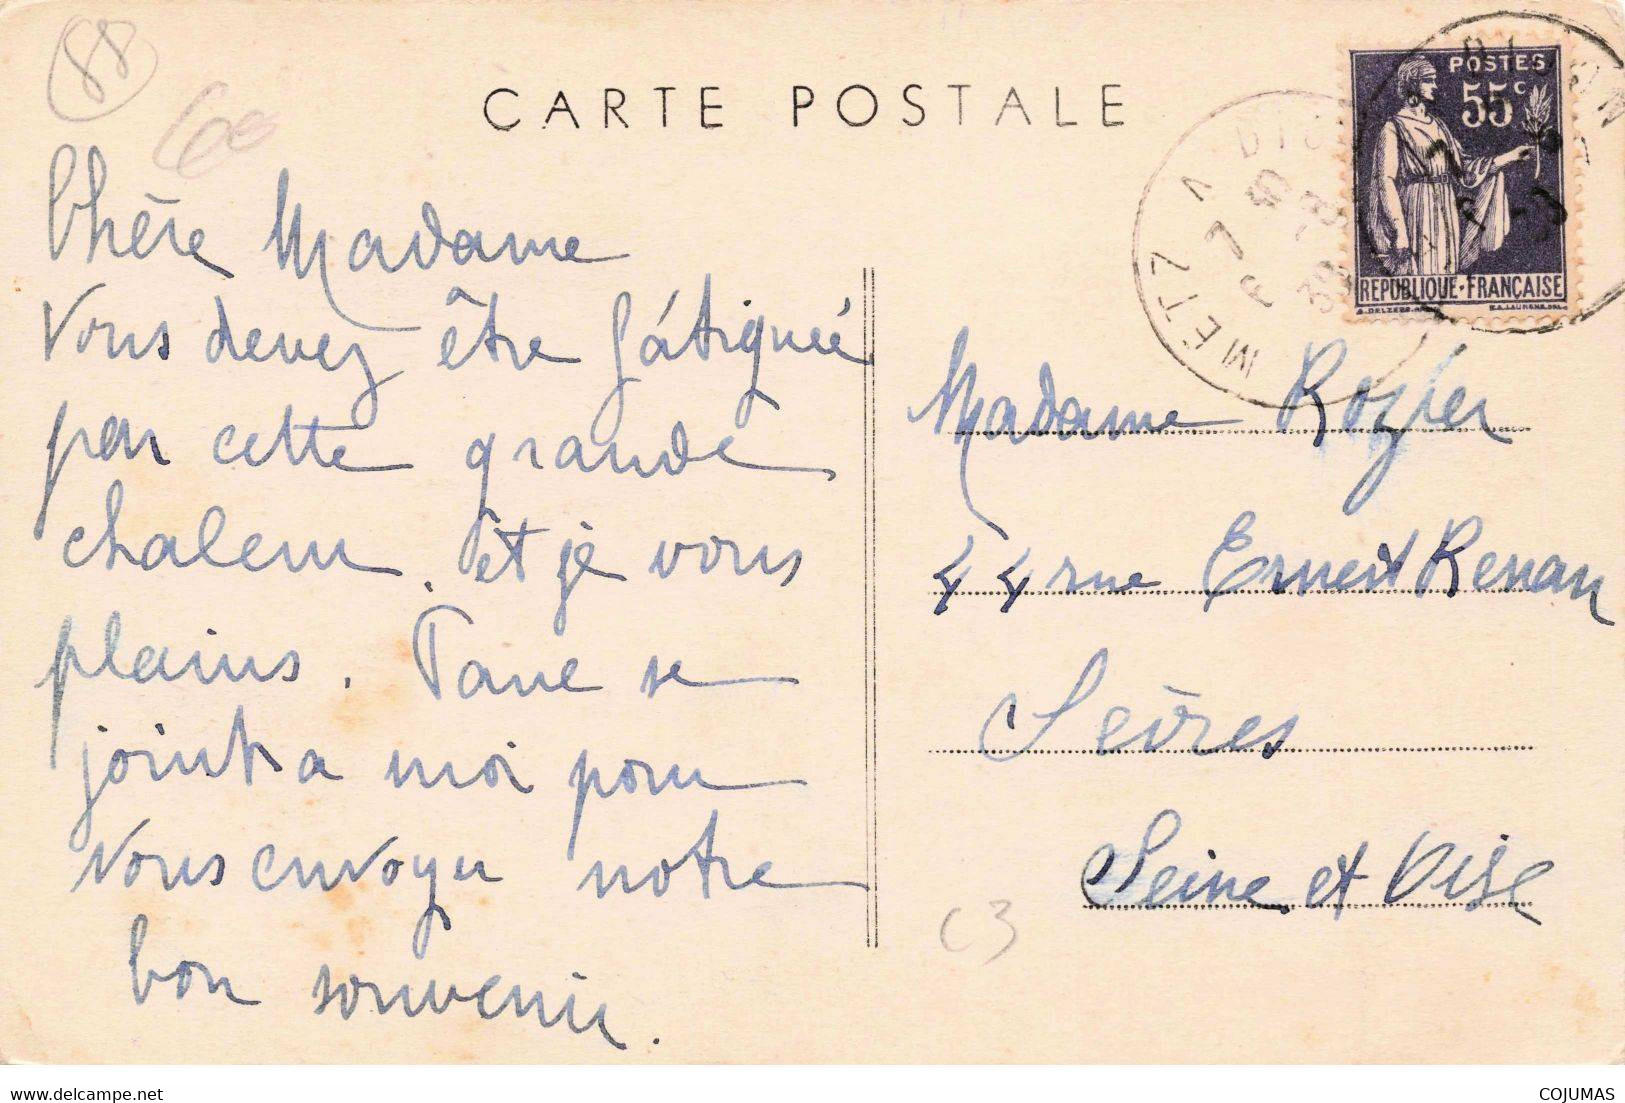 88
60
CARTE POSTALE
POSTES
55c
REPUBLIQUE·FRANÇAISE
METZ A
7 6
Chère Madame
Vous devez être fátiguée
par cette grande
chaleur. et je vous
plains. se
joint a moi pour
vous envoyer notre
bon souvenir.
Madame Rozier
44 rue Ernest Renan
Sèvres
Seine et Oise
C3
COJUMAS